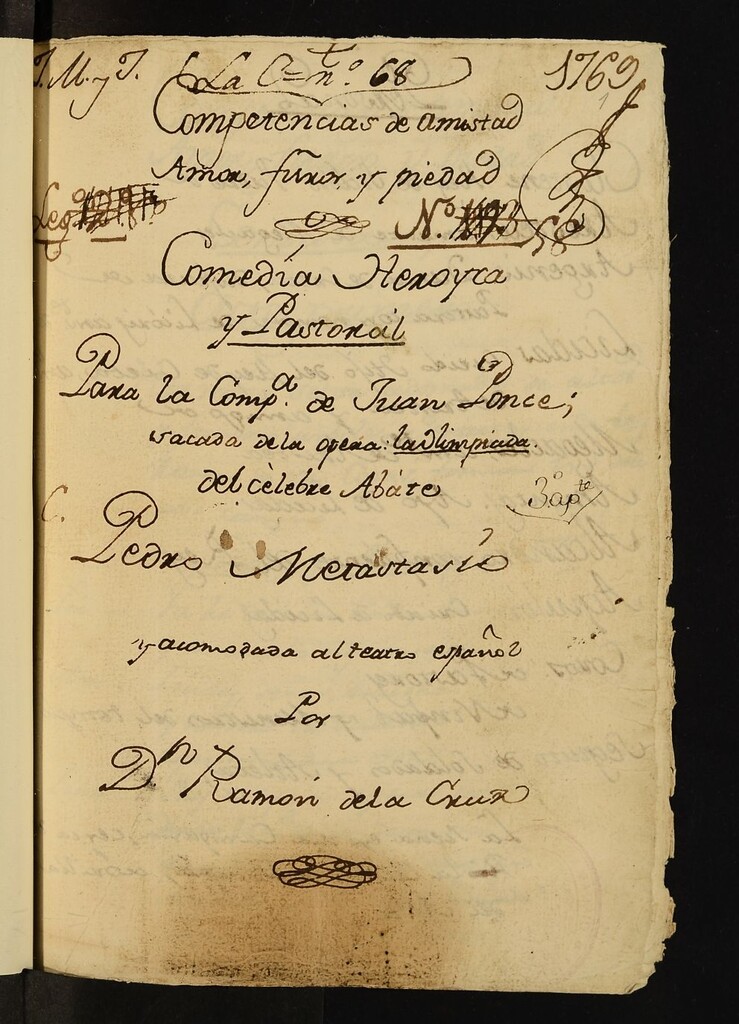 J. M. y J. La C= t n.º 68 1769
Competencias de amistad
Amor, furor, y piedad
Leg.º N.º 58
Comedia Heroyca
y Pastorál
Para la Comp.ª de Juan Ponce;
sacada de la opera: la Olimpiada.
del cèlebre Abáte
3.º ap.te
C.
Pedro Metastasio
y acomodada al teatro español
Por
D.n Ramón de la Cruz